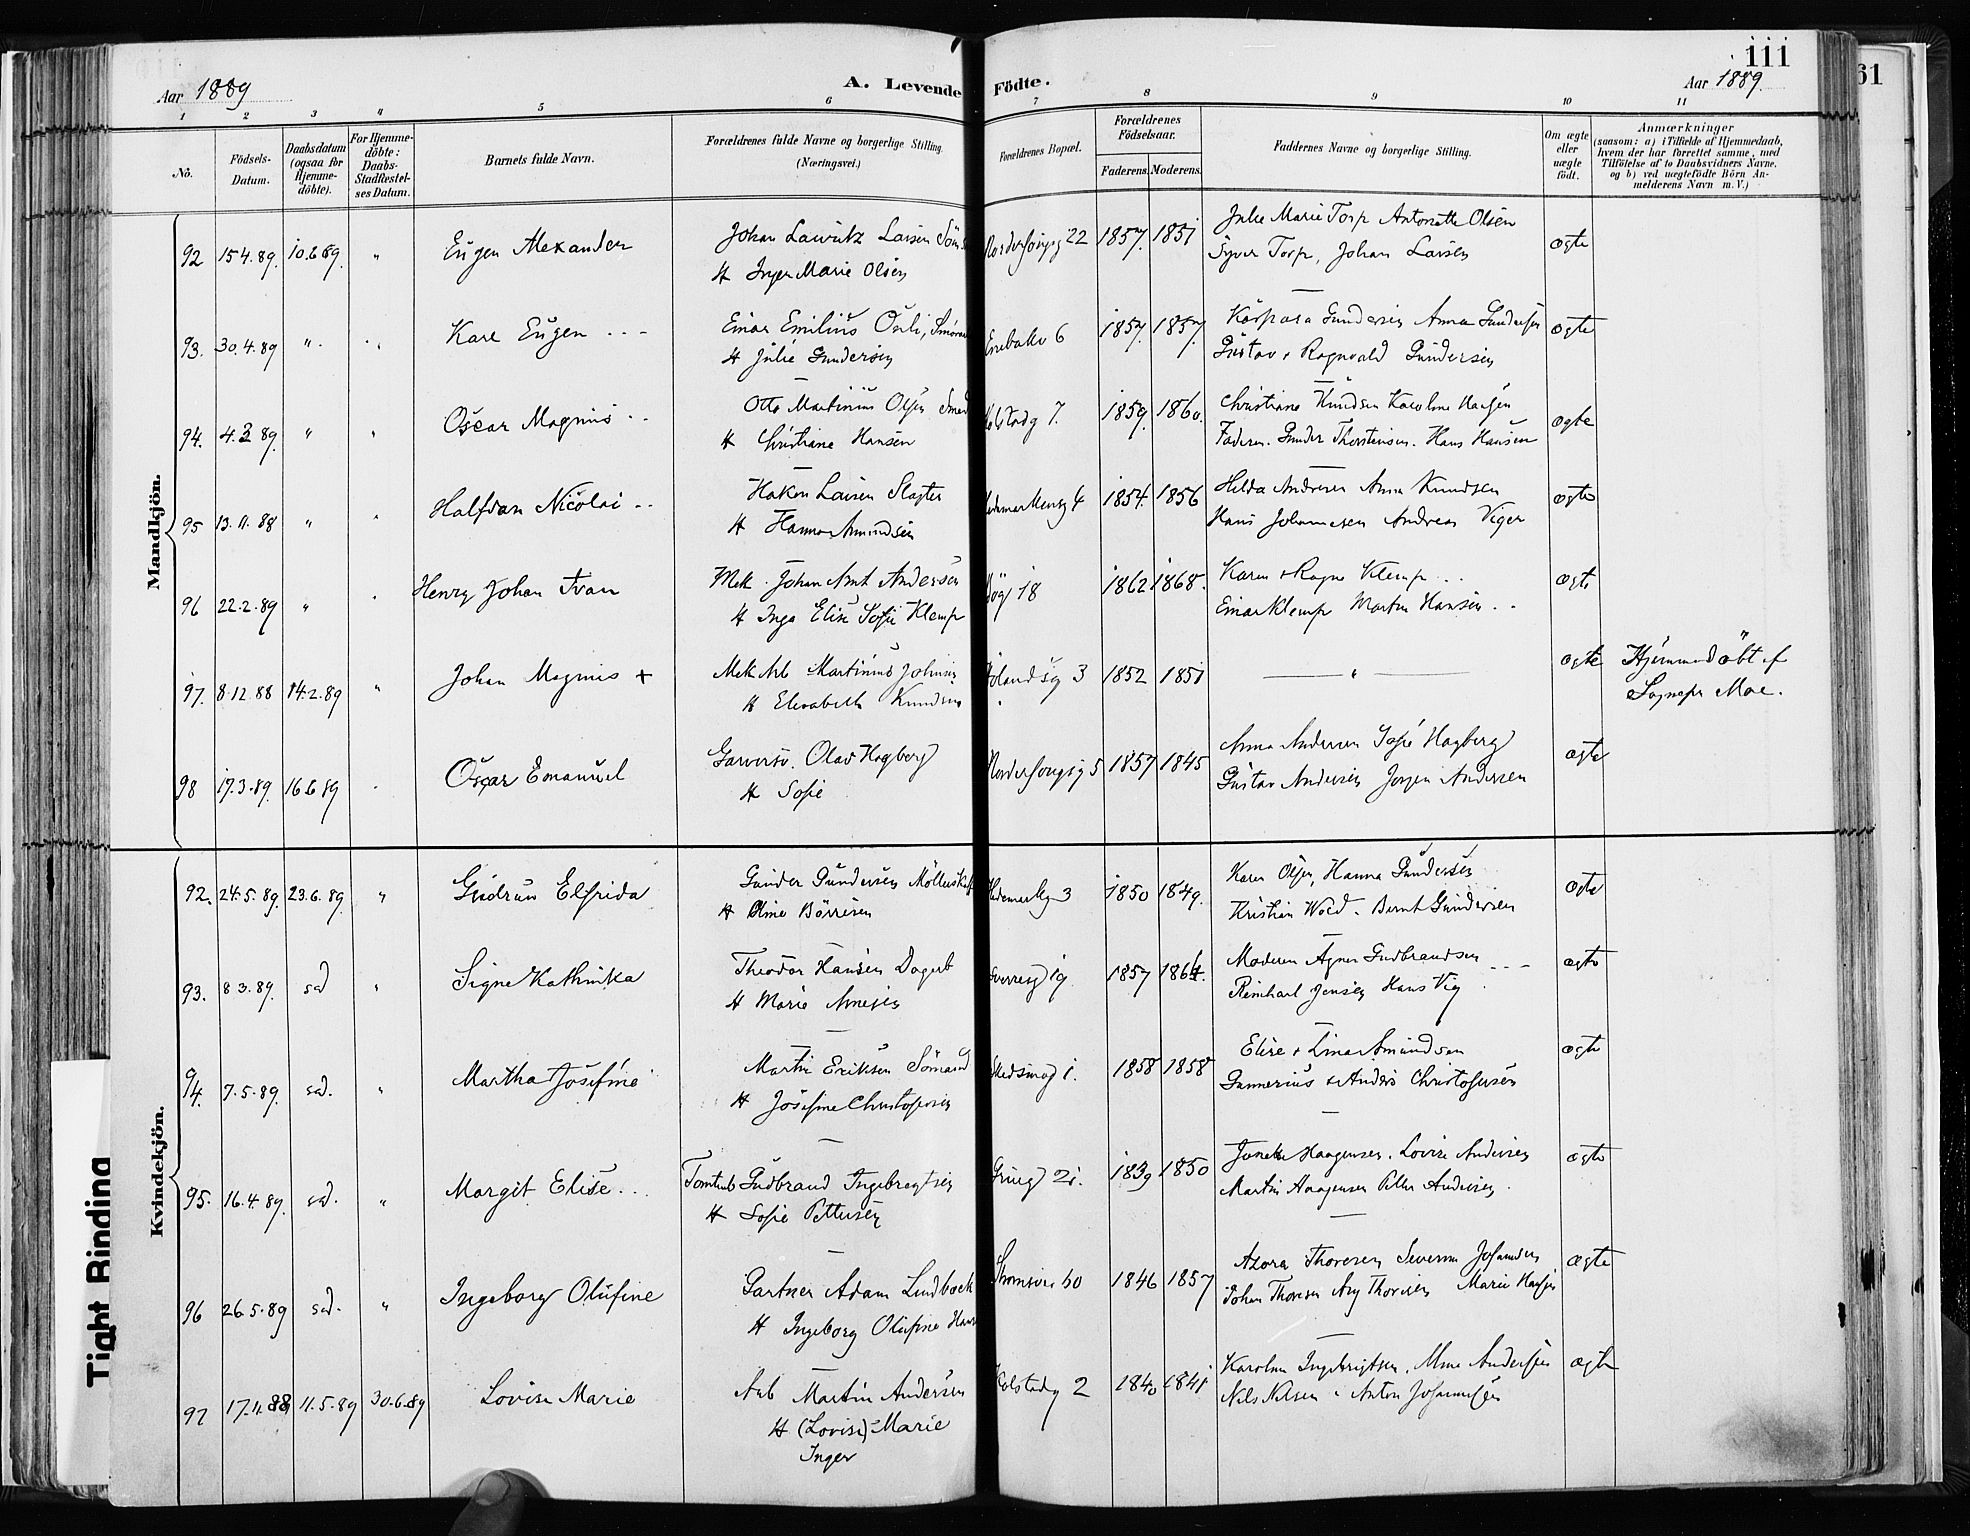 Aar 1889
A. Levende Födte.
iii
Aar 1889.
61
1 2 3 4 5 6 7 8 9 10 11
No.
Födsels-Datum.
Daabsdatum (ogsaa for Hjemme-döbte).
For Hjemme-döbte: Daabs-Stadfæstel-ses Datum.
Barnets fulde Navn.
Forældrenes fulde Navne og borgerlige Stilling. (Næringsvei.)
Forældrenes Bopæl.
Forældrenes Födselsaar.
Faderens. Moderens.
Faddernes Navne og borgerlige Stilling.
Om ægte eller uægte födt.
Anmærkninger (saasom: a) i Tilfælde af Hjemmedaab, hvem der har forrettet samme, med Tilföielse af to Daabsvidners Navne, og b) ved uægtefödte Börn An-melderens Navn m. V.)
Mandkjön.
92 15.4.89. 10.6.89. " Eugen Alexander Johan Lauritz Larsen 22 1857. 1851 Julie Marie Torp Antonette Olsen ægte
H Inger Marie Olsen Syver Torp, Johan Larsen
93. 30.4.89 " " Kare Eugen Einar Emilius 6 1857. 1857. Gundersen Anna Gundersen ægte
H Julie Gundersen Gustav + Ragnvald Gundersen
94. 4. 89. " " Oscar Magnus Otto Martinius Olsen Smed 7. 1859. 1860. Christiane Knudsen Karoline Hansen ægte
H Christiane Hansen Faderen. Gunder Thorstensen. Hans Hansen
95 13.11.88 " " Halfdan Nicolai Hakon Larsen Slagter 4 1854. 1856 Hilda Andresen Anna Knudsen ægte
H Hanna Amundsen Hans Johannesen Andreas Viger
96 22.2.89 " " Henry Johan Ivan Mek. Johan Ant Andersen 18 1862 1868. Karen + Ragna Klemp ægte
H Inga Elise Sofie Klemp Einar Klemp Martin Hansen
97. 8.12.88 14.2.89 " Johan Magnus + Mek Arb Martinus Johnsen 3 1852 1851 — " — ægte Hjemmedöbt af
H Elisabeth Knudsen Sognepr Moe.
98 17.3.89. 16.6.89 Oscar Emanuel Garversv. Olav Hagberg 5 1857 1845 Anna Andersen Sofie Hagberg ægte
H Sofie Gustav Andersen Jörgen Andersen
Kvindekjön.
92. 24.5.89. 23.6.89. " Gudrun Elfrida Gunder Gundersen 3 1850 1849. Karen Olsen, Hanna Gundersen ægte
H Oline Börresen Kristian Wold. Bernt Gundersen
93. 8.3.89. sd " Signe Kathinka Theodor Hansen Dagarb 19 1857 1864. Moderen Agnes Gudbrandsen ægte
H Marie Arnesen Reinhart Jensen Hans Vig
94. 7.5.89. sd. " Martha Josefine Martin Eriksen Sömand 1. 1858 1858 Elise + Lina Amundsen ægte
H Josefine Christofersen Gunnerius + Anders Christofersen
95. 16.4.89. sd. " Margit Elise Tomtearb Gudbrand Ingebregtsen 21. 1839 1850 Haagensen. Lovise Andersen ægte
H Sofie Pettersen Martin Haagensen Andersen.
96 26.5.89 sd. " Ingeborg Olufine Gartner Adam Lindbæck 1846 1857 Thoresen Severine ægte
H Ingeborg Olufine Johan Thoresen Thoresen Marie Hansen
97 17.11.88 11.5.89 30.6.89 Lovise Marie Arb Martin Andersen Holstadg 2 1840 1841 Karoline Ingebrigtsen. Andersen ægte
H (Lovise) Marie Nils Nilsen + Anton Johannesen
Inger
Tight Binding